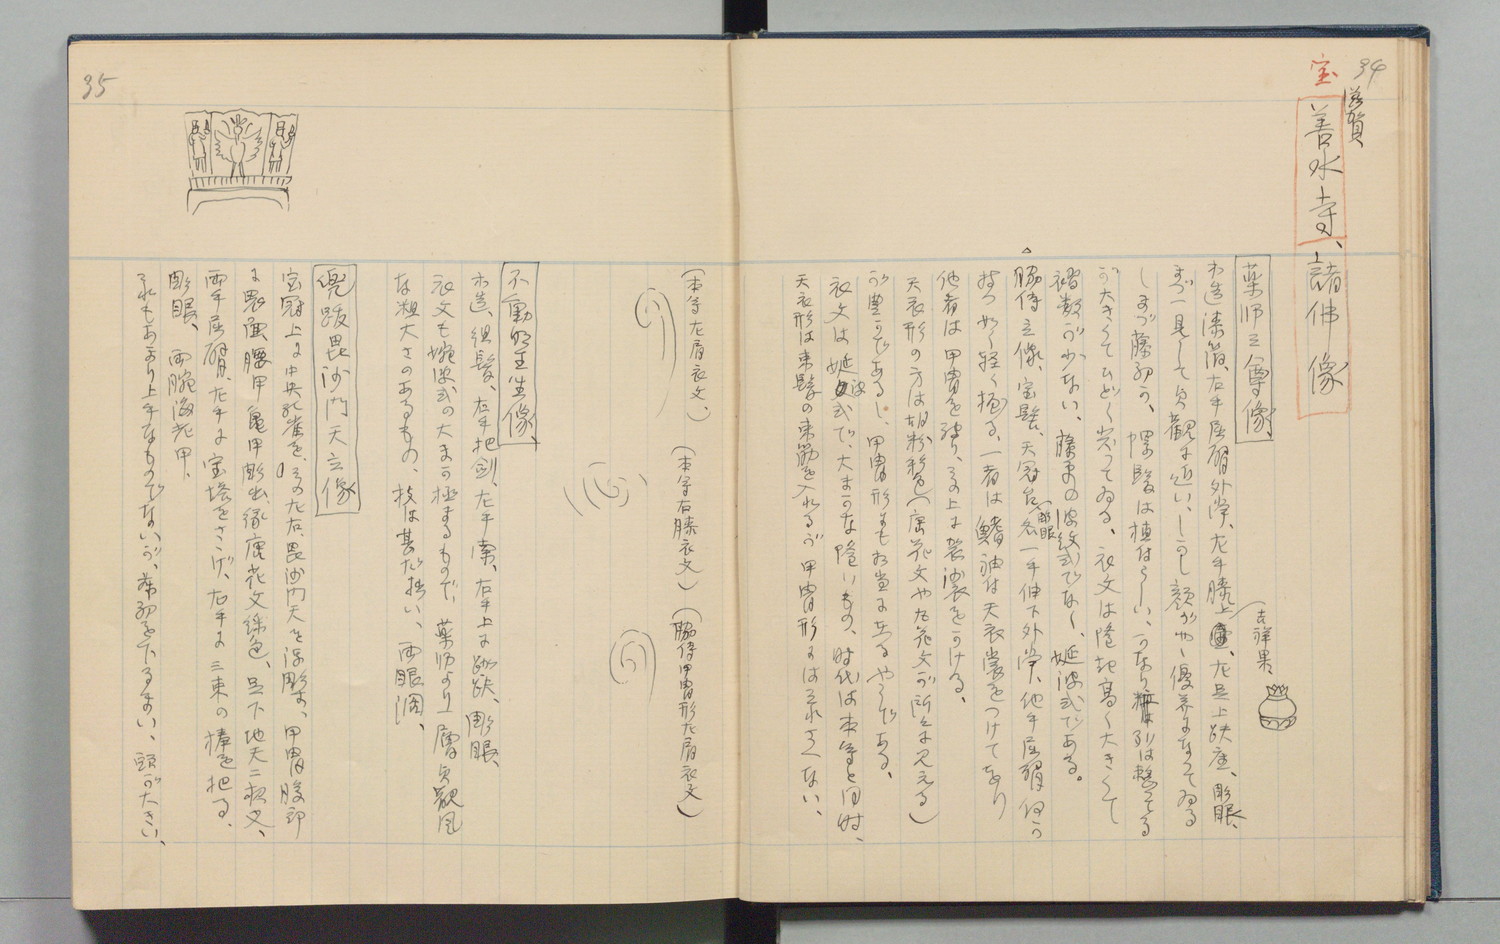 34
宝
滋賀
善水寺、諸佛像
薬師三尊像、
木造漆箔、右手屈臂外掌、左手膝上、左足上趺座、彫眼、
吉祥果、
まづ一見して貞観に近い、しかし顔がやゝ優美になつてゐる
しまづ藤初か、螺髪は植らしい、かなり粒は列は整つてゐる
が大きくてひどく尖つてゐる、衣文は隆起高く大きくて
褶数が少ない、藤末の波紋式でなく、娫波式である。
脇侍立像、宝髻、天冠台、各一手伸下外掌、他手屈臂何か
(彫眼)
持つ如く軽く握る、一者は鰭袖は天衣裳をつけてをり
他者は甲冑を被り、その上に袈裟をかける、
天衣形の方は胡粉彩色(唐花文や丸花文が所々に見える)
が豊かであるし、甲冑形にもお当にあるやうである、
衣文は娫波式で、大まかな隆いもの、時代は本尊と同時、
天衣形は束髪の束筋を入れるが甲冑形にはそれさへない、
35
(本尊左肩衣文、)
(本尊右膝衣文)
(脇侍甲冑形左肩衣文)
不動明王坐像、
木造、組髪、右手把剣、左手索、右手上に跏趺、彫眼、
衣文も婉波式の大まか極まるもので、薬師より一層貞観風
な粗大さのあるもの、技は甚だ拙い、両眼濶、
兜跋毘沙門天立像
宝冠上に中央孔雀を、その左右毘沙門天を浮彫す、甲冑腹部
に畏面、腰甲亀甲彫出、縁唐花文彩色、足下地天二夜叉、
両手屈臂、左手に宝塔をさゝげ、右手に三束の棒を把る、
彫眼、両腕海老甲、
それもあまり上手なものでないが、藤初を下るまい、頭が大きい、